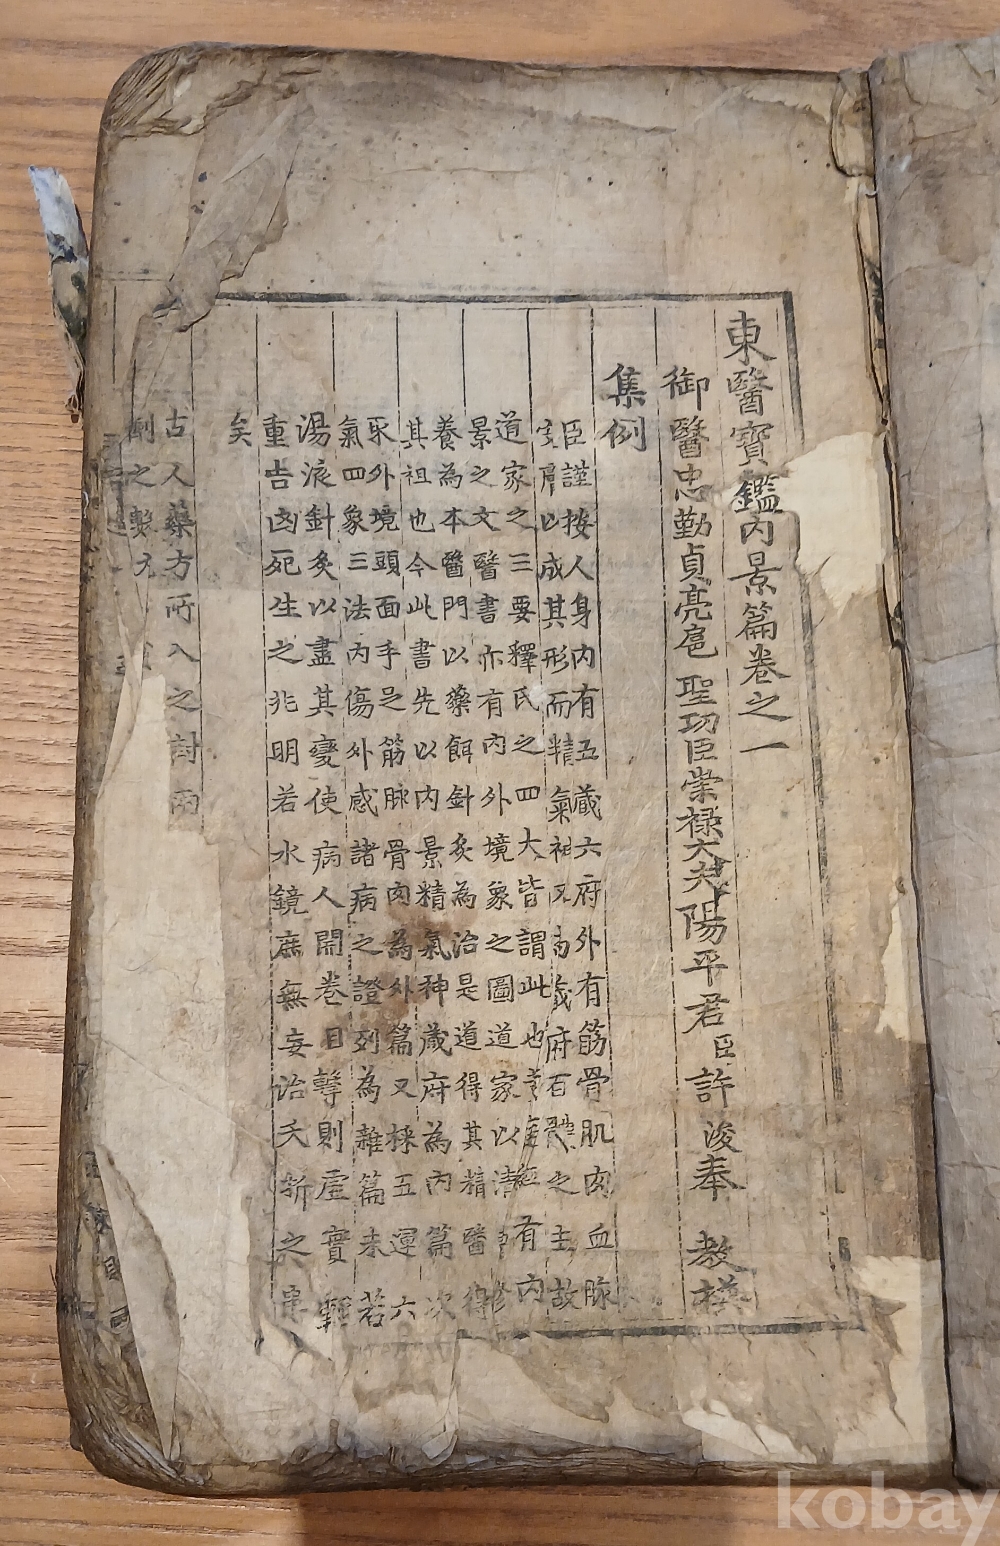 東醫寶鑑內景篇卷之一
御醫忠勤貞亮扈聖功臣崇祿大夫陽平君臣許浚奉教撰
集例
臣謹按人身內有五藏六府外有筋骨肌肉血脉
以成其形而精氣神又為藏府百體之主故
道家之三要釋氏之四大皆謂此也黃庭經有內
景之文醫書亦有內外境象之圖道家以清靜修
養為本醫門以藥餌針灸為治是道得其精醫得
其祖也今此書先以內景精氣神藏府為內篇次
采外境頭面手足筋脉骨肉為外篇又採五運六
氣四象三法內傷外感諸病之證列為雜篇末若
湯液針灸以盡其變使病人開卷目擊則虛實輕
重吉凶死生之兆明若水鏡庶無妄治夭折之患
矣
古人藥方所入之 兩
劑之
kobay